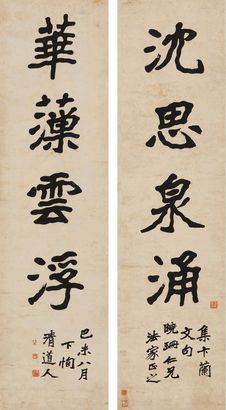 沈思泉涌
集卞蘭
文句
晚珊仁兄
法家正之
華藻雲浮
己未八月
下恂
清道人